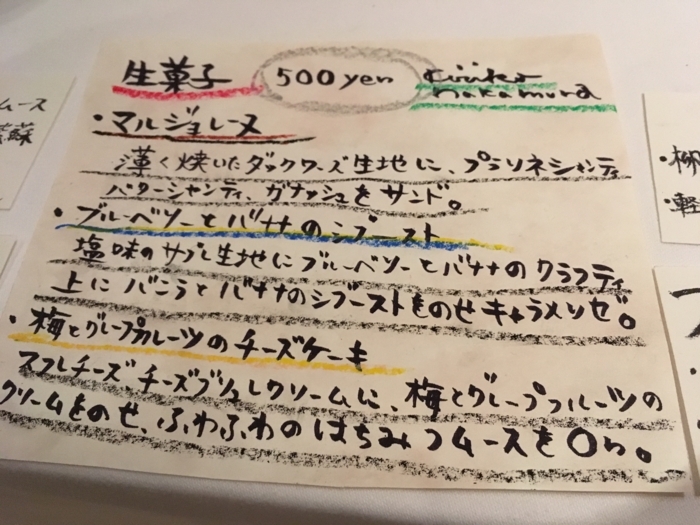 生菓子 500yen nakamura
・マルジョレーヌ
薄く焼いたダックワーズ生地に、プラリネシャンティ
バターシャンティ、ガナッシュをサンド。
・ブルーベリーとバナナのシブースト
塩味のサブレ生地にブルーベリーとバナナのクラフティ
上にバニラとバナナのシブーストをのせキャラメリゼ。
・梅とグレープフルーツのチーズケーキ
スフレチーズ、チーズブリュレクリームに、梅とグレープフルーツの
クリームをのせ、ふわふわのはちみつムースを on。
ムース
紫蘇
・柳
・軽